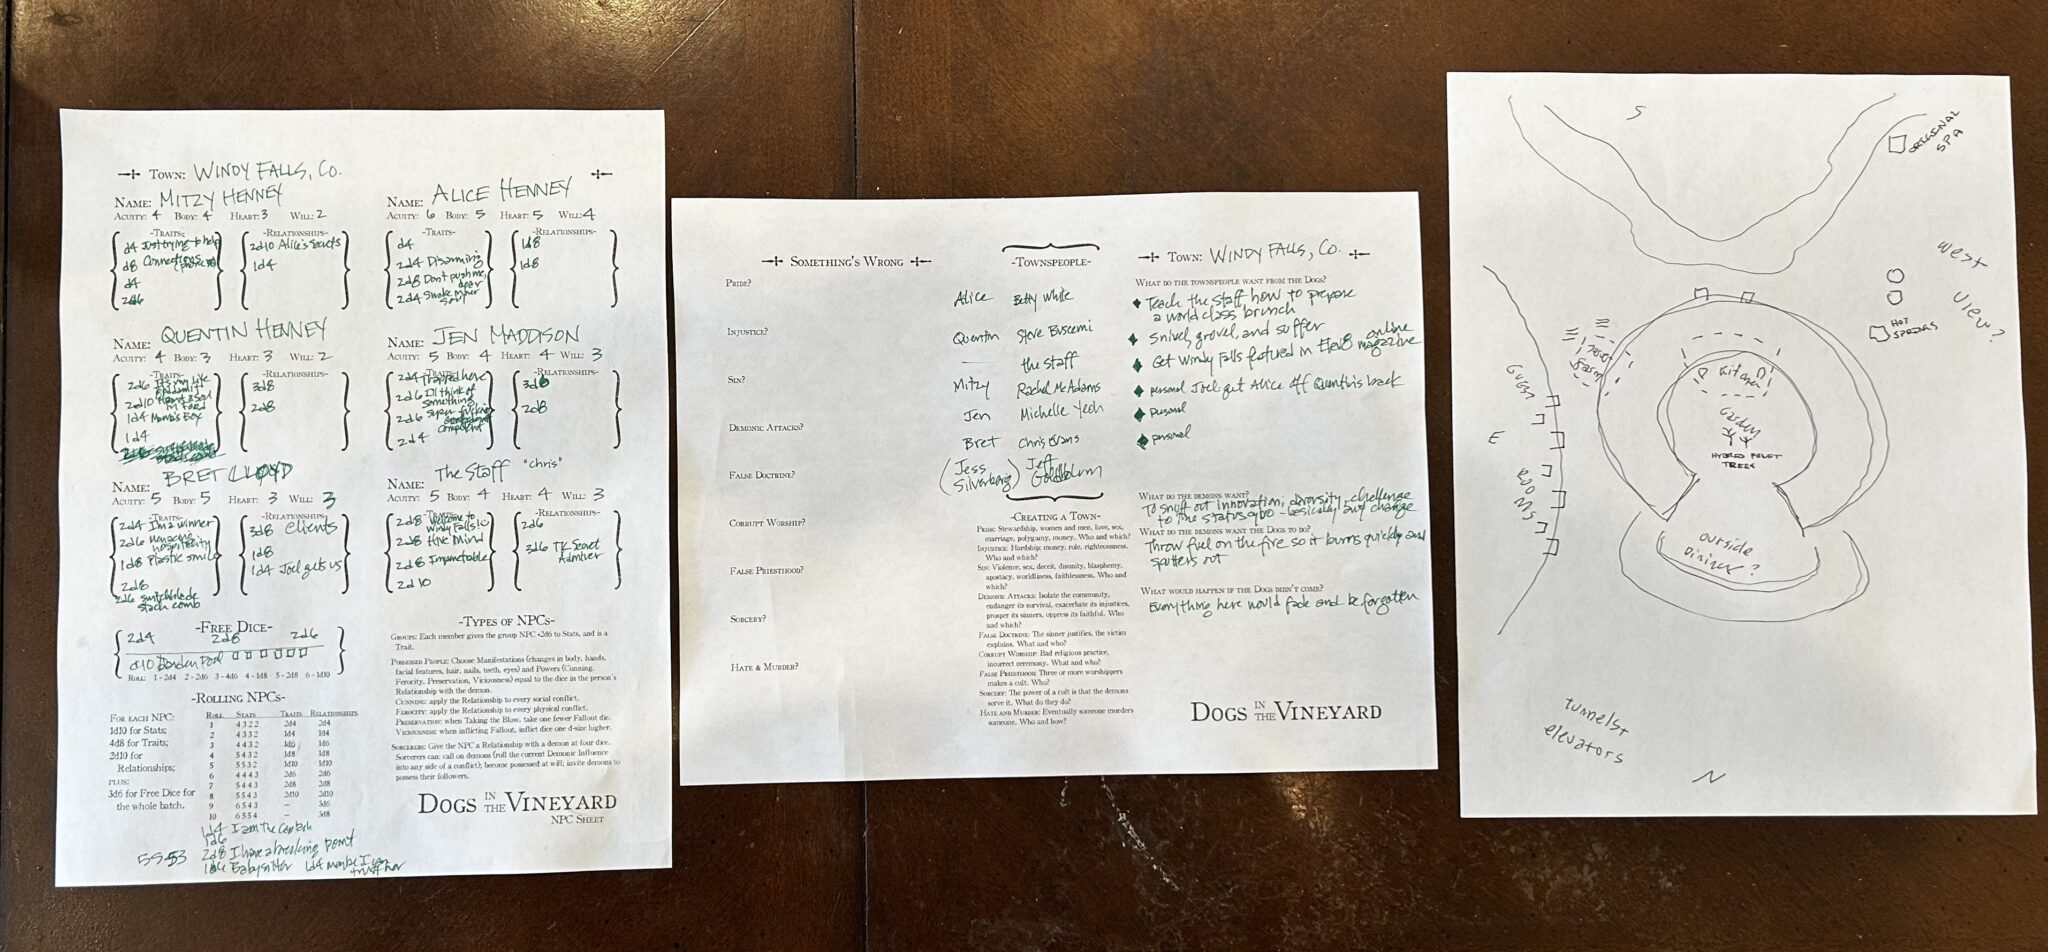 Town: WINDY FALLS, CO.
Name: MITZY HENNEY
Acuity: 4 Body: 4 Heart: 3 Will: 2
-Traits-
d4 Just trying to help
d8 Connections
d4
2d6
-Relationships-
2d10 Alice's Secrets
1d4
Name: ALICE HENNEY
Acuity: 6 Body: 5 Heart: 5 Will: 4
-Traits-
d4
2d4 Disarming
2d8 Don't push me, dear
2d4
-Relationships-
1d8
1d8
Name: QUENTIN HENNEY
Acuity: 4 Body: 3 Heart: 3 Will: 2
-Traits-
2d6 It's my life
goddamit
2d10 Heart & Soul
in food
1d4 Mama's Boy
1d4
-Relationships-
3d8
2d8
Name: JEN MADDISON
Acuity: 5 Body: 4 Heart: 4 Will: 3
-Traits-
2d4 Trapped here
2d6 I'll think of
something
2d6 Super fucking
competent
2d4
-Relationships-
3d8
2d8
Name: BRET LLOYD
Acuity: 5 Body: 5 Heart: 3 Will: 3
-Traits-
2d4 I'm a winner
2d6 Menacing
hospitality
1d8 Plastic smile
2d8
2d6 switchblade
stach comb
-Relationships-
3d8 clients
1d8
1d4 Joel gets us
Name: The Staff "Chris"
Acuity: 5 Body: 4 Heart: 4 Will: 3
-Traits-
2d8 Welcome to
Windy Falls! :)
2d8 Hive Mind
2d8 Impenetrable
2d10
-Relationships-
2d6
3d6 TK Secret
Admirer
-Free Dice-
2d4 2d8 2d6
d10 Burden Pool
Roll: 1 - 2d4 2 - 2d6 3 - 4d6 4 - 1d8 5 - 2d8 6 - 1d10
-Rolling NPCs-
For each NPC:
1d10 for Stats;
4d8 for Traits;
2d10 for
Relationships;
plus:
3d6 for Free Dice for
the whole batch.
Roll Stats Traits Relationships
1 4 3 2 2 2d4 2d4
2 4 3 3 2 1d4 1d4
3 4 4 3 2 1d6 1d6
4 5 4 3 2 1d8 1d8
5 5 5 3 2 1d10 1d10
6 4 4 4 3 2d6 2d6
7 5 4 4 3 2d8 2d8
8 5 5 4 3 2d10 2d10
9 6 5 4 3 — 3d6
10 6 5 5 4 — 3d8
-Types of NPCs-
Groups: Each member gives the group NPC +2d6 to Stats, and is a
Trait.
Possessed People: Choose Manifestations (changes in body, hands,
facial features, hair, nails, teeth, eyes) and Powers (Cunning,
Ferocity, Preservation, Viciousness) equal to the dice in the person's
Relationship with the demon.
Cunning: apply the Relationship to every social conflict.
Ferocity: apply the Relationship to every physical conflict.
Preservation: when Taking the Blow, take one fewer Fallout die.
Viciousness: when inflicting Fallout, inflict dice one d-size higher.
Sorcerers: Give the NPC a Relationship with a demon at four dice.
Sorcerers can: call on demons (roll the current Demonic Influence
into any side of a conflict); become possessed at will; invite demons to
possess their followers.
Dogs in the Vineyard
NPC Sheet
5553
1d4 I am the captain
1d6
2d8 I have a breaking point
1d6 Babysitter 1d4 maybe I can
trust her
Something's Wrong
Pride?
Injustice?
Sin?
Demonic Attacks?
False Doctrine?
Corrupt Worship?
False Priesthood?
Sorcery?
Hate & Murder?
-Townspeople-
Alice Betty White
Quentin Steve Buscemi
— the Staff
Mitzy Rachel McAdams
Jen Michelle Yeoh
Bret Chris Evans
(Jess Silverberg) Jeff Goldblum
-Creating a Town-
Pride: Stewardship, women and men, love, sex,
marriage, polygamy, money. Who and which?
Injustice: Hardship: money, role, righteousness.
Who and which?
Sin: Violence, sex, deceit, disunity, blasphemy,
apostacy, worldliness, faithlessness. Who and
which?
Demonic Attacks: Isolate the community,
endanger its survival, exacerbate its injustices,
prosper its sinners, oppress its faithful. Who
and which?
False Doctrine: The sinner justifies, the victim
explains. What and who?
Corrupt Worship: Bad religious practice,
incorrect ceremony. What and who?
False Priesthood: Three or more worshippers
makes a cult. Who?
Sorcery: The power of a cult is that the demons
serve it. What do they do?
Hate and Murder: Eventually someone murders
someone. Who and how?
Town: WINDY FALLS, CO.
What do the townspeople want from the Dogs?
Teach the staff how to prepare
a world class brunch
Snivel, grovel, and suffer
Get Windy Falls featured in Elev8 online magazine
personal Joel: get Alice off Quentin's back
personal
personal
What do the demons want?
To snuff out innovation, diversity, challenge
to the status quo - basically any change
What do the demons want the Dogs to do?
Throw fuel on the fire so it burns quickly and
sputters out
What would happen if the Dogs didn't come?
Everything here would fade and be forgotten
Dogs in the Vineyard
S
ORIGINAL
SPA
West
View?
HOT
SPRINGS
Farm
Kitchen
Garden
HYBRID FRUIT
TREES
Guest
Rooms
E
Outside
Dining?
tunnels+
elevators
N